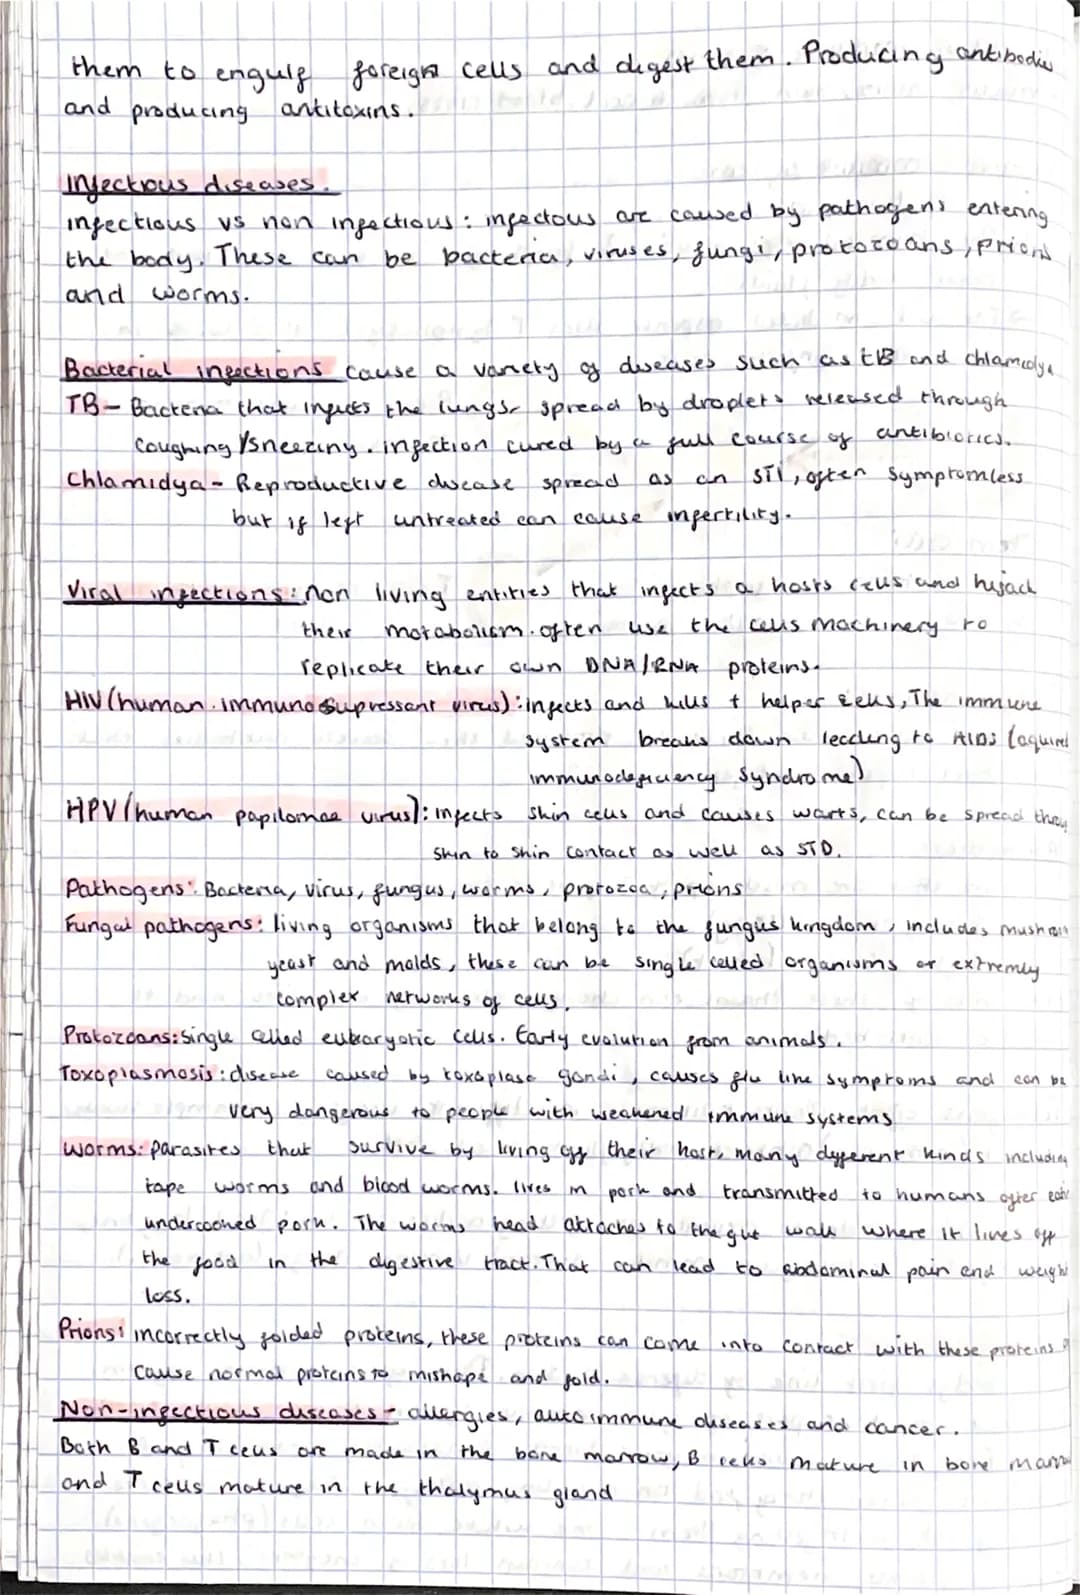 them to engulf foreign cells and digest them. Producing antibodies
and producing antitoxins.
Infectious diseases.
infectious vs non infectious: infectous are caused by pathogens entering
the body. These can be bacteria, viruses, fungi, protozoans, prions
and worms.
Bacterial infections cause a variety of diseases such as tB and chlamidya
TB- Bacteria that infects the lungs spread by droplets released through
coughing/sneezing. infection cured by a full course of antibiotics.
Chlamidya- Reproductive disease spread as an STI, often symptomless
but if left untreated can cause infertility.
Viral infections: non living entities that infects a hosts cells and hijack
their motabolism. often use the cells machinery to
replicate their own DNA/RNA proteins.
HIV (human immuno supressant virus): infects and kills t helper cells, The immune
system breaks down leading to AIDS (aquired
immunodeficiency syndrome)
HPV (human papilomae virus): infects skin cells and causes warts, can be spread
skin to skin contact as well as STD.
Pathogens: Bacteria, virus, fungus, worms, protozoa, prions
Fungal pathogens: living organisms that belong to the fungus kingdom, includes
yeast and molds, these can be single celled organisms or extremly
complex networks of cells.
Protozoans: Single celled eukaryotic cells. Early evolution from animals.
Toxoplasmosis: disease caused by toxoplase gondi, causes flu like symptoms and can be
very dangerous to people with weakened immune systems
Worms: parasites that survive by living off their host, many different kinds including
tape worms and blood worms. lives in pork and transmitted to humans after
undercooked pork. The worms head attaches to the gut wall where it lives off
the food in the digestive tract. That can lead to abdominal pain and weight
loss.
Prions: incorrectly folded proteins, these proteins can come into contact with these proteins
cause normal proteins to mishape and fold.
Non-infectious diseases- allergies, autoimmune diseases and cancer.
Both B and T cells are made in the bone marrow, B cells mature in bone
and T cells mature in the thalymus gland